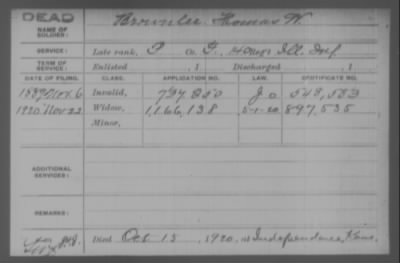 DEAD
NAME OF SOLDIER: Brownlee Thomas W.
SERVICE: Late rank, P Co. F, 140 Regt Ill. Inf
TERM OF SERVICE: Enlisted , 1 Discharged , 1
DATE OF FILING. CLASS. APPLICATION NO. LAW. CERTIFICATE NO.
1889 Nov. 6 Invalid, 739 250 Jo 548,583
1920 Nov 22 Widow, 1,166,138 5-1-20 897,535
Minor,
ADDITIONAL SERVICES:
REMARKS:
Died Oct 15, 1920, at Independence, Kans.